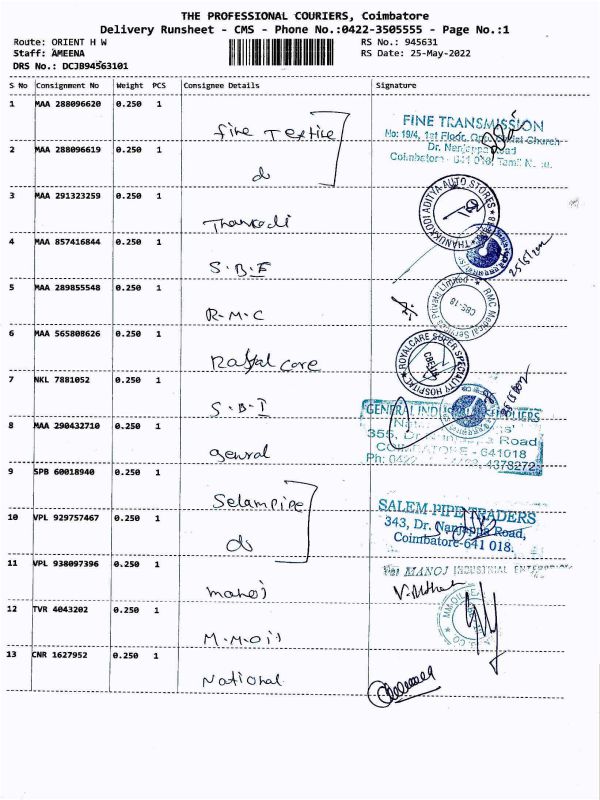 THE PROFESSIONAL COURIERS, Coimbatore
Delivery Runsheet - CMS - Phone No.:0422-3505555 - Page No.:1
Route: ORIENT H W RS No.: 945631
Staff: AMEENA RS Date: 25-May-2022
DRS No.: DCJB94563101
S No Consignment No Weight PCS Consignee Details Signature
1 MAA 288096620 0.250 1
fine Textile
FINE TRANSMISSION
No: 19/4, 1st Floor, Church
Dr. Nanjappa Road
Coimbatore - 641 018, Tamil
2 MAA 288096619 0.250 1
do
3 MAA 291323259 0.250 1
Thankodi
THANUKKODI ADITYA AUTO STORES
4 MAA 857416844 0.250 1
S.B.I
25/5/2022
5 MAA 289855548 0.250 1
R.M.C
RMC Medical Services Private Limited
CBS-18
6 MAA 565808626 0.250 1
Royal care
ROYALCARE SUPER SPECIALITY HOSPITAL
7 NKL 7881052 0.250 1
S.B.I
GENERAL INDUSTRIAL SUPPLIERS
8 MAA 290432710 0.250 1
genral
355, Dr. Nanjappa Road
COIMBATORE - 641018
Ph: 0422 4378272
9 SPB 60018940 0.250 1
Selampipe
SALEM PIPE TRADERS
343, Dr. Nanjappa Road,
Coimbatore-641 018.
10 VPL 929757467 0.250 1
do
11 VPL 938097396 0.250 1
manoj
MANOJ INDUSTRIAL ENTERPRISES
12 TVR 4043202 0.250 1
M.M.Oil
13 CNR 1627952 0.250 1
National